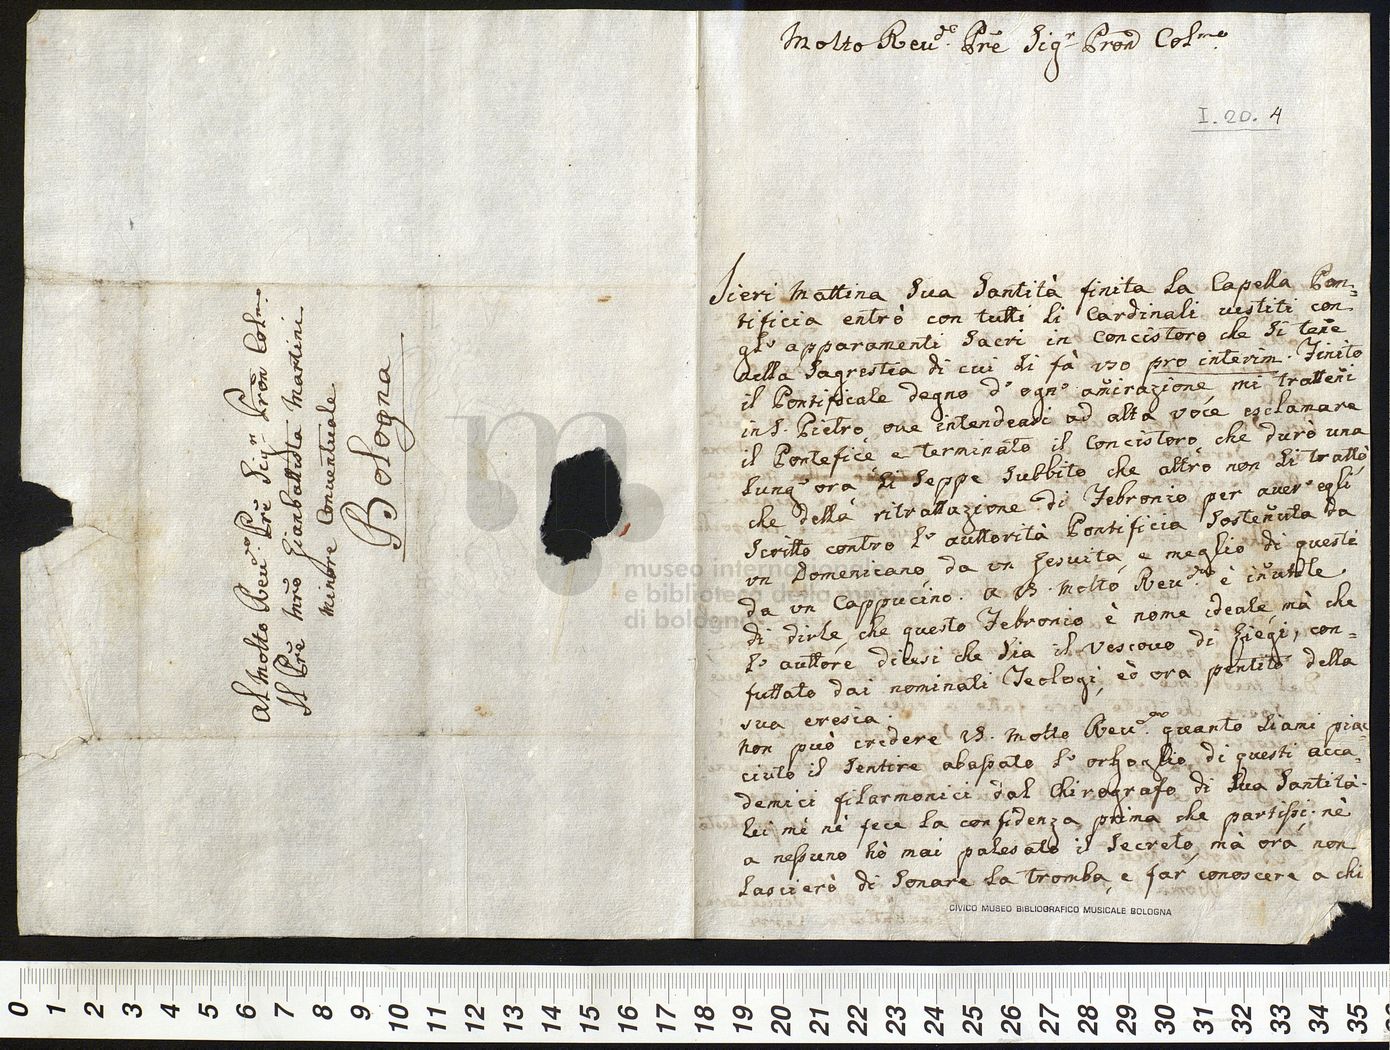 Al Molto Reu.do Prē Sig.r Prōn Col.mo
Il Prē Mrō Gianbattista Martini
Minore Conuentuale
Bologna
Molto Reu.do Prē Sig.r Prōn Col.mo
I. 20. 4
Jieri Mattina Sua Santità finita la Capella Pon=
tificia entrò con tutti li Cardinali vestiti con
gl' apparamenti Sacri in Concistoro che si tēne
nella Sagrestia di cui si fà vso pro interim. Finito
il Pontificale degno d' ogn' amirazione mi tratteñi
in S. Pietro oue intendeasi ad alta voce esclamare
il Pontefice e terminato il Concistoro che durò una
lung' ora si seppe subbito che altro non si trattò
che della ritrattazione di Febronio per auer' egli
scritto contro l' auttorità Pontificia sosteñuta da
vn Domenicano da vn Gesuita, e meglio di questi
da vn Cappucino. a V. Molto Reu.do è inutile
di dirle che questo Febronio è nome ideale, mà che
l' auttore dicesi che sia il Vescouo di Liegi, con=
futtato dai nominati Teologi, ed ora pentito della
sua eresia.
Non può credere V. Molto Reu.do quanto siami piac
ciuto il sentire abassato l' orgoglio di questi acca=
demici filarmonici dal Chirografo di Sua Santità.
Lei mi nè fece la confidenza prima che partissi. nè
a nessuno hò mai palesato il secreto, mà ora non
lascierò di sonare la tromba, e far conoscere a chi
CIVICO MUSEO BIBLIOGRAFICO MUSICALE BOLOGNA
m.
museo internazionale
e biblioteca della musica
di bologna
0 1 2 3 4 5 6 7 8 9 10 11 12 13 14 15 16 17 18 19 20 21 22 23 24 25 26 27 28 29 30 31 32 33 34 35